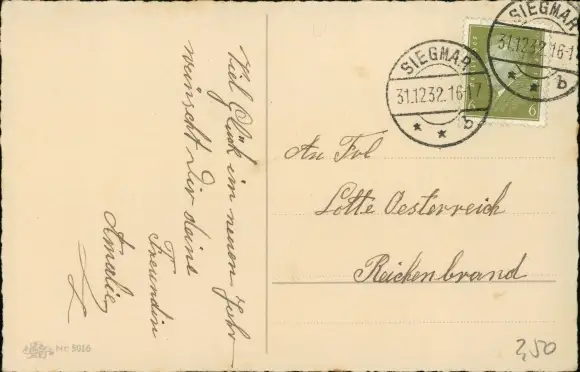 Viel Glück im neuen Jahr
wünscht Dir deine
Freundin
Amalie
L
SIEGMAR
31.12.32.16-17
b
SIEGMAR
31.12.32.16-1
b
6
6
An Frl
Lotte Oesterreich
Reichenbrand
2,50
Nr. 5016